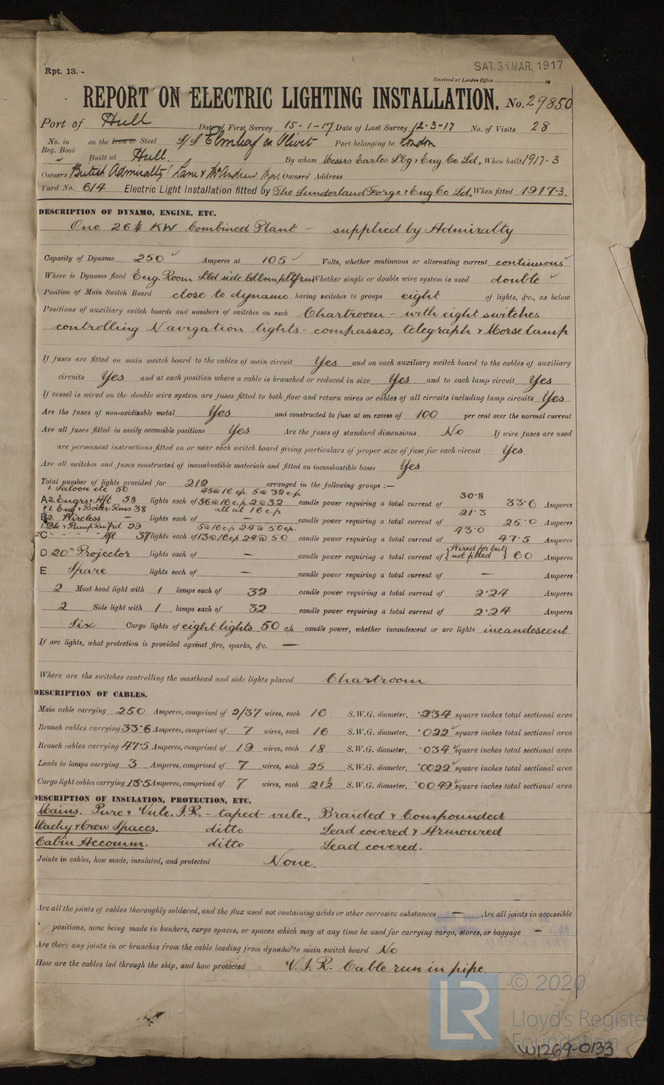 Rpt. 13.-
SAT. 31 MAR. 1917
Received at London Office
REPORT ON ELECTRIC LIGHTING INSTALLATION. No. 29850
Port of Hull Date of First Survey 15-1-17 Date of Last Survey 12-3-17 No. of Visits 28
No. in Reg. Book on the Iron or Steel S/S Elmleaf ex Olivet Port belonging to London
Built at Hull. By whom Messrs Earles Sbg & Eng Co Ld, When built 1917-3
Owners British Admiralty Lane & McAndrew Owners' Address
Yard No. 614 Electric Light Installation fitted by The Sunderland Forge & Eng Co Ld. When fitted 1917-3.
DESCRIPTION OF DYNAMO, ENGINE, ETC.
One 26¼ KW Combined Plant - supplied by Admiralty
Capacity of Dynamo 250 Amperes at 105 Volts, whether continuous or alternating current continuous
Where is Dynamo fixed Eng. Room Stbd side Whether single or double wire system is used double
Position of Main Switch Board close to dynamo having switches to groups eight of lights, &c., as below
Positions of auxiliary switch boards and numbers of switches on each Chartroom - with eight switches
controlling Navigation lights - compasses, telegraph & Morse lamp
If fuses are fitted on main switch board to the cables of main circuit Yes and on each auxiliary switch board to the cables of auxiliary
circuits Yes and at each position where a cable is branched or reduced in size Yes and to each lamp circuit Yes
If vessel is wired on the double wire system are fuses fitted to both flow and return wires or cables of all circuits including lamp circuits Yes
Are the fuses of non-oxidizable metal Yes and constructed to fuse at an excess of 100 per cent over the normal current
Are all fuses fitted in easily accessible positions Yes Are the fuses of standard dimensions No If wire fuses are used
are permanent instructions fitted on or near each switch board giving particulars of proper size of fuse for each circuit Yes
Are all switches and fuses constructed of incombustible materials and fitted on incombustible bases Yes
Total number of lights provided for 212 arranged in the following groups :-
1. Saloon etc 50 45 @ 16 c.p. 5 @ 32 c.p. 30.8
A 2. Engrs & Aft 58 lights each of 56 @ 16 c.p. 2 @ 32 candle power requiring a total current of 33.6 Amperes
1. Eng & Boiler Rms 38 all at 16 c.p. 21.3
B 2. Wireless lights each of - candle power requiring a total current of 25.0 Amperes
1 Dk & Pump Rm Frd 29 5 @ 16 cp 24 @ 50 cp. 43.0
2 C " " " Aft 37 lights each of 13 @ 16 cp 24 @ 50 candle power requiring a total current of 47.5 Amperes
D 20" Projector lights each of - candle power requiring a total current of { Wired for but not fitted } 60 Amperes
E Spare lights each of - candle power requiring a total current of - Amperes
2 Mast head light with 1 lamps each of 32 candle power requiring a total current of 2.24 Amperes
2 Side light with 1 lamps each of 32 candle power requiring a total current of 2.24 Amperes
Six Cargo lights of eight lights 50 c/p candle power, whether incandescent or arc lights incandescent
If arc lights, what protection is provided against fire, sparks, &c. -
Where are the switches controlling the masthead and side lights placed Chartroom
DESCRIPTION OF CABLES.
Main cable carrying 250 Amperes, comprised of 2/37 wires, each 16 S.W.G. diameter, .234 square inches total sectional area
Branch cables carrying 33.6 Amperes, comprised of 7 wires, each 16 S.W.G. diameter, .022 square inches total sectional area
Branch cables carrying 47.5 Amperes, comprised of 19 wires, each 18 S.W.G. diameter, .034 square inches total sectional area
Leads to lamps carrying 3 Amperes, comprised of 7 wires, each 25 S.W.G. diameter, .0022 square inches total sectional area
Cargo light cables carrying 13.5 Amperes, comprised of 7 wires, each 21½ S.W.G. diameter, .0049 square inches total sectional area
DESCRIPTION OF INSULATION, PROTECTION, ETC.
Mains. Pure & Vulc. I.R. - taped - vulc., Braided & Compounded
Machy & Crew Spaces. ditto Lead covered & Armoured
Cabin Accomm. ditto Lead covered.
Joints in cables, how made, insulated, and protected None.
Are all the joints of cables thoroughly soldered, and the flux used not containing acids or other corrosive substances - Are all joints in accessible
positions, none being made in bunkers, cargo spaces, or spaces which may at any time be used for carrying cargo, stores, or baggage -
Are there any joints in or branches from the cable leading from dynamo to main switch board No
How are the cables led through the ship, and how protected V.I.R. Cable run in pipe.
© 2020
LR
Lloyd's Register
Foundation
W1269-0133